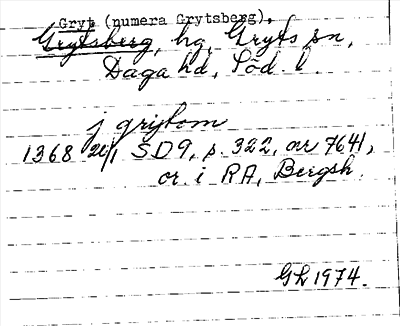 Gryt (numera Grytsberg),
Grytsberg, hg, Gryts sn,
Daga hd, Söd. l.
j grytom
1368 20/1 SD9, p. 322, nr 7641,
or. i RA, Bergsh.
GL 1974.